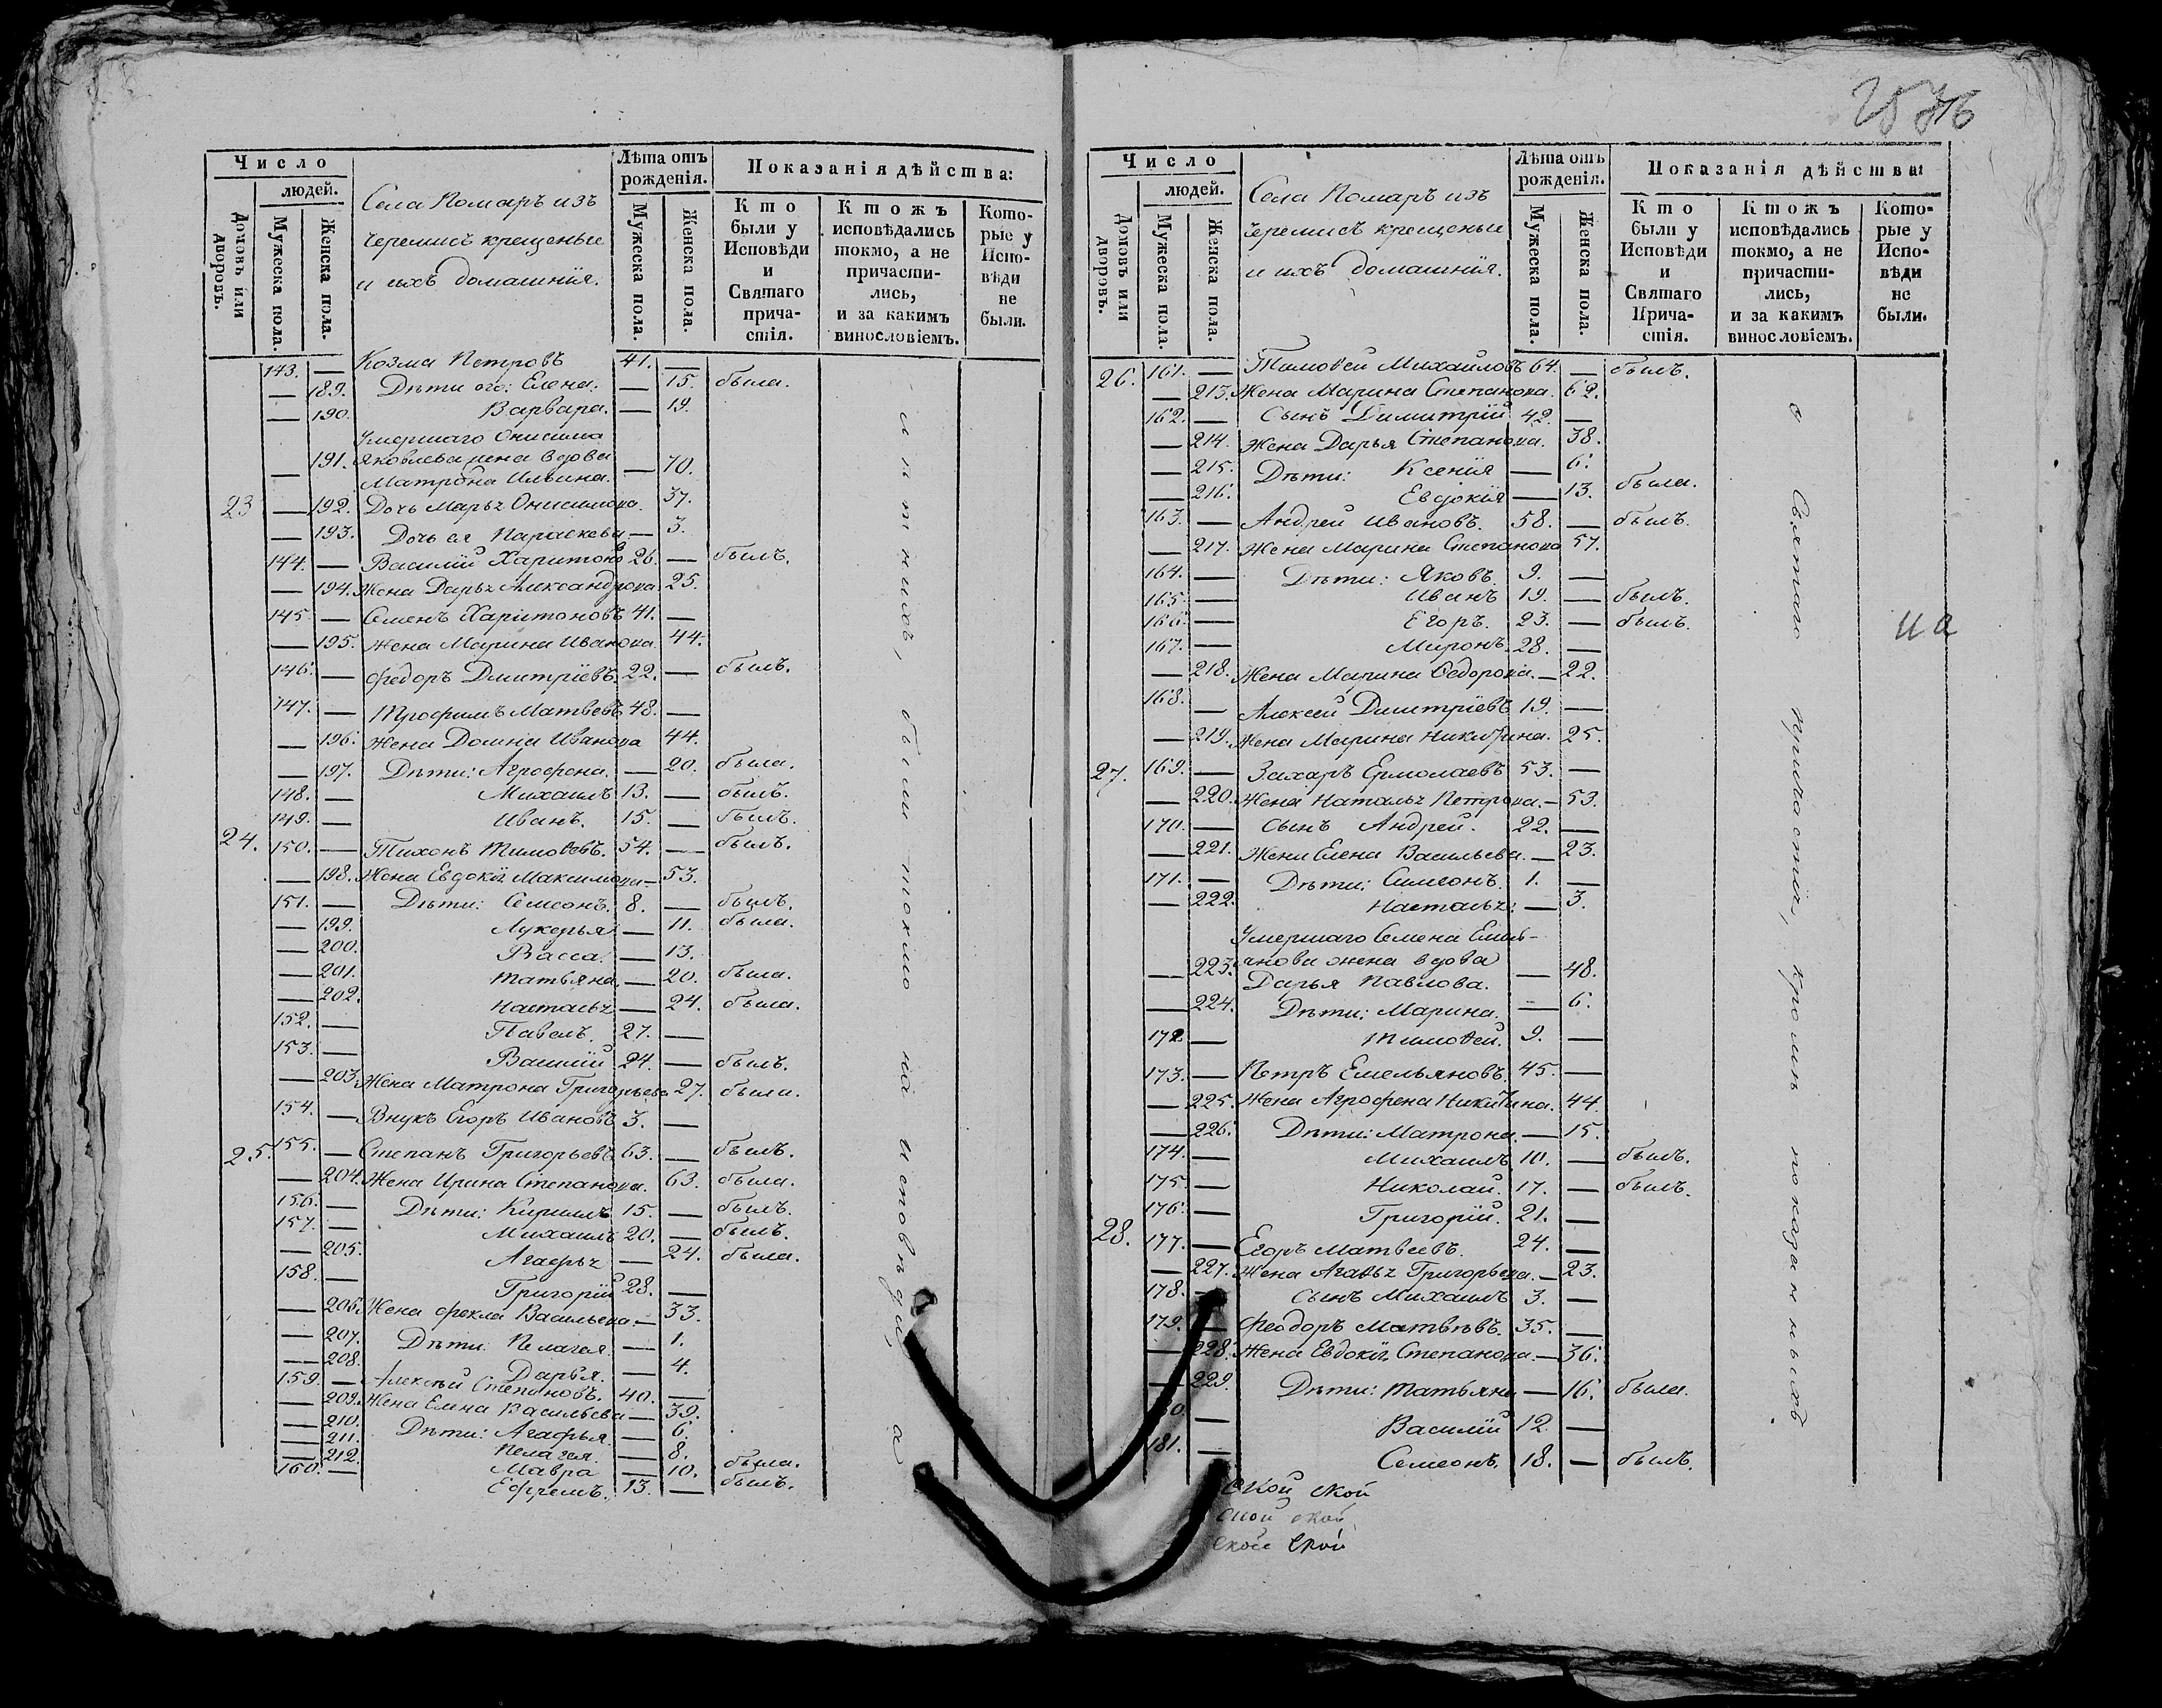 Число
людей.
Домовъ или дворовъ.
Мужеска пола.
Женска пола.
Села Помаръ изъ
черемисъ крещеные
и ихъ домашнія.
Лѣта отъ рожденія.
Мужеска пола.
Женска пола.
Показанія дѣйства:
Кто были у Исповѣди и Святаго прича-стія.
Ктожъ исповѣдались токмо, а не причасти-лись, и за какимъ винословіемъ.
Кото-рые у Испо-вѣди не были.
143. — Козма Петровъ 41. —
— 189. Дѣти его: Елена. — 15. была.
— 190. Варвара. — 19.
Умершаго Онисима
— 191. Яковлева жена вдова — 70.
Матрона Ильина.
23 — 192. Дочь Марья Онисимова. 37.
— 193. Дочь ея Параскева — 3.
144. — Василій Харитоновъ 26. — былъ.
— 194. Жена Дарья Александрова 25.
145. — Семенъ Харитоновъ 41. —
— 195. Жена Марина Иванова 44.
146. — Федоръ Дмитріевъ. 22. — былъ.
147. — Трофимъ Матвеевъ 48. —
— 196. Жена Домна Иванова 44.
— 197. Дѣти: Агрофена. — 20. была.
148. — Михаилъ 13. — былъ.
149. — Иванъ. 15. — былъ.
24. 150. — Тихонъ Тимоѳеевъ. 54. — былъ.
— 198. Жена Евдокія Максимова — 53.
151. — Дѣти: Семеонъ. 8. — былъ.
— 199. Лукерья — 11. была.
— 200. Васса. — 13.
— 201. Татьяна. — 20. была.
— 202. Настасья — 24. была.
152. — Павелъ. 27. —
153. — Василій 24. — былъ.
— 203. Жена Матрона Григорьева 27. была.
154. — Внукъ Егоръ Ивановъ 3. —
25. 155. — Степанъ Григорьевъ 63. — былъ.
— 204. Жена Ирина Степанова. 63. была.
156. — Дѣти: Кирилъ 15. — былъ.
157. — Михаилъ 20. — былъ.
— 205. Агафья — 24. была.
158. — Григорій 28. —
— 206. Жена Фекла Васильева — 33.
— 207. Дѣти: Пелагея. — 1.
— 208. Дарья. — 4.
159. — Алексѣй Степановъ. 40. —
— 209. Жена Елена Васильева — 39.
— 210. Дѣти: Агафья. — 6.
— 211. Пелагея. — 8.
— 212. Мавра — 10. была.
160. — Ефремъ. 13. — былъ.
были токмо на исповѣди, а
Число
людей.
Домовъ или дворовъ.
Мужеска пола.
Женска пола.
Села Помаръ изъ
черемисъ крещеные
и ихъ домашнія.
Лѣта отъ рожденія.
Мужеска пола.
Женска пола.
Показанія дѣйства:
Кто были у Исповѣди и Святаго Прича-стія.
Ктожъ исповѣдались токмо, а не причасти-лись, и за какимъ винословіемъ.
Кото-рые у Испо-вѣди не были.
26. 161. — Тимоѳей Михайловъ 64. — былъ.
— 213. Жена Марина Степанова. 62.
162. — Сынъ Димитрій 42. —
— 214. Жена Дарья Степанова. 38.
— 215. Дѣти: Ксенія — 6.
— 216. Евдокія — 13. была.
163. — Андрей Ивановъ. 58. — былъ.
— 217. Жена Марина Степанова 57.
164. — Дѣти: Яковъ. 9. —
165. — Иванъ 19. — былъ.
166. — Егоръ. 23. — былъ.
167. — Миронъ. 28. —
— 218. Жена Марина Ѳедорова. — 22.
168. — Алексей Димитріевъ 19. —
— 219. Жена Марина Никитина. 25.
27. 169. — Захаръ Ермолаевъ 53. —
— 220. Жена Наталья Петрова. — 53.
170. — Сынъ Андрей. 22. —
— 221. Жена Елена Васильева. — 23.
171. — Дѣти: Симеонъ. 1. —
— 222. Настасья: — 3.
Умершаго Семена Емель-
— 223. янова жена вдова — 48.
Дарья Павлова.
— 224. Дѣти: Марина. — 6.
172 — Тимоѳей. 9. —
173. — Петръ Емельяновъ. 45. —
— 225. Жена Агрофена Никитина. 44.
— 226. Дѣти: Матрона. — 15.
174. — Михаилъ 10. — былъ.
175. — Николай. 17. — былъ.
176. — Григорій. 21. —
28. 177. — Егоръ Матвеевъ. 24. —
— 227. Жена Агафья Григорьева. — 23.
178. — Сынъ Михаилъ 3. —
179. — Феодоръ Матвѣевъ. 35. —
— 228. Жена Евдокія Степанова. — 36.
— 229. Дѣти: Татьяна — 16. была.
80. — Василій 12. —
181. — Семеонъ. 18. — былъ.
у Святаго причастія, кромѣ показанныхъ
ской ской
ской ской
ской ской